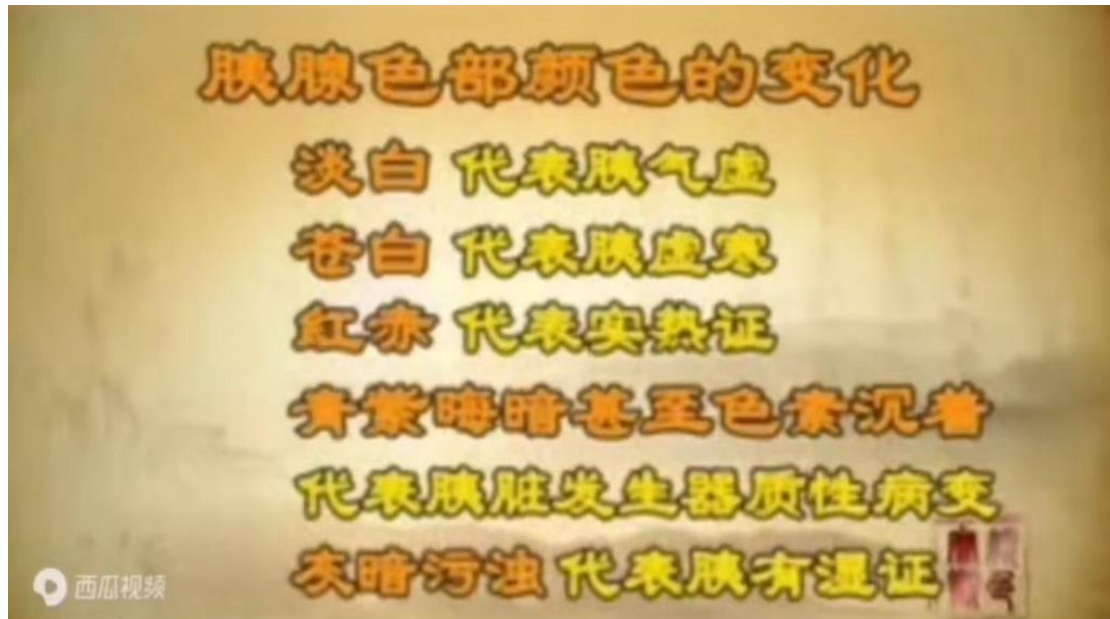 胰腺色部颜色的变化
淡白 代表胰气虚
苍白 代表胰虚寒
紅赤 代表实热证
青紫晦暗甚至色素沉着
代表胰脏发生器质性病变
灰暗污浊 代表胰有湿证
西瓜视频